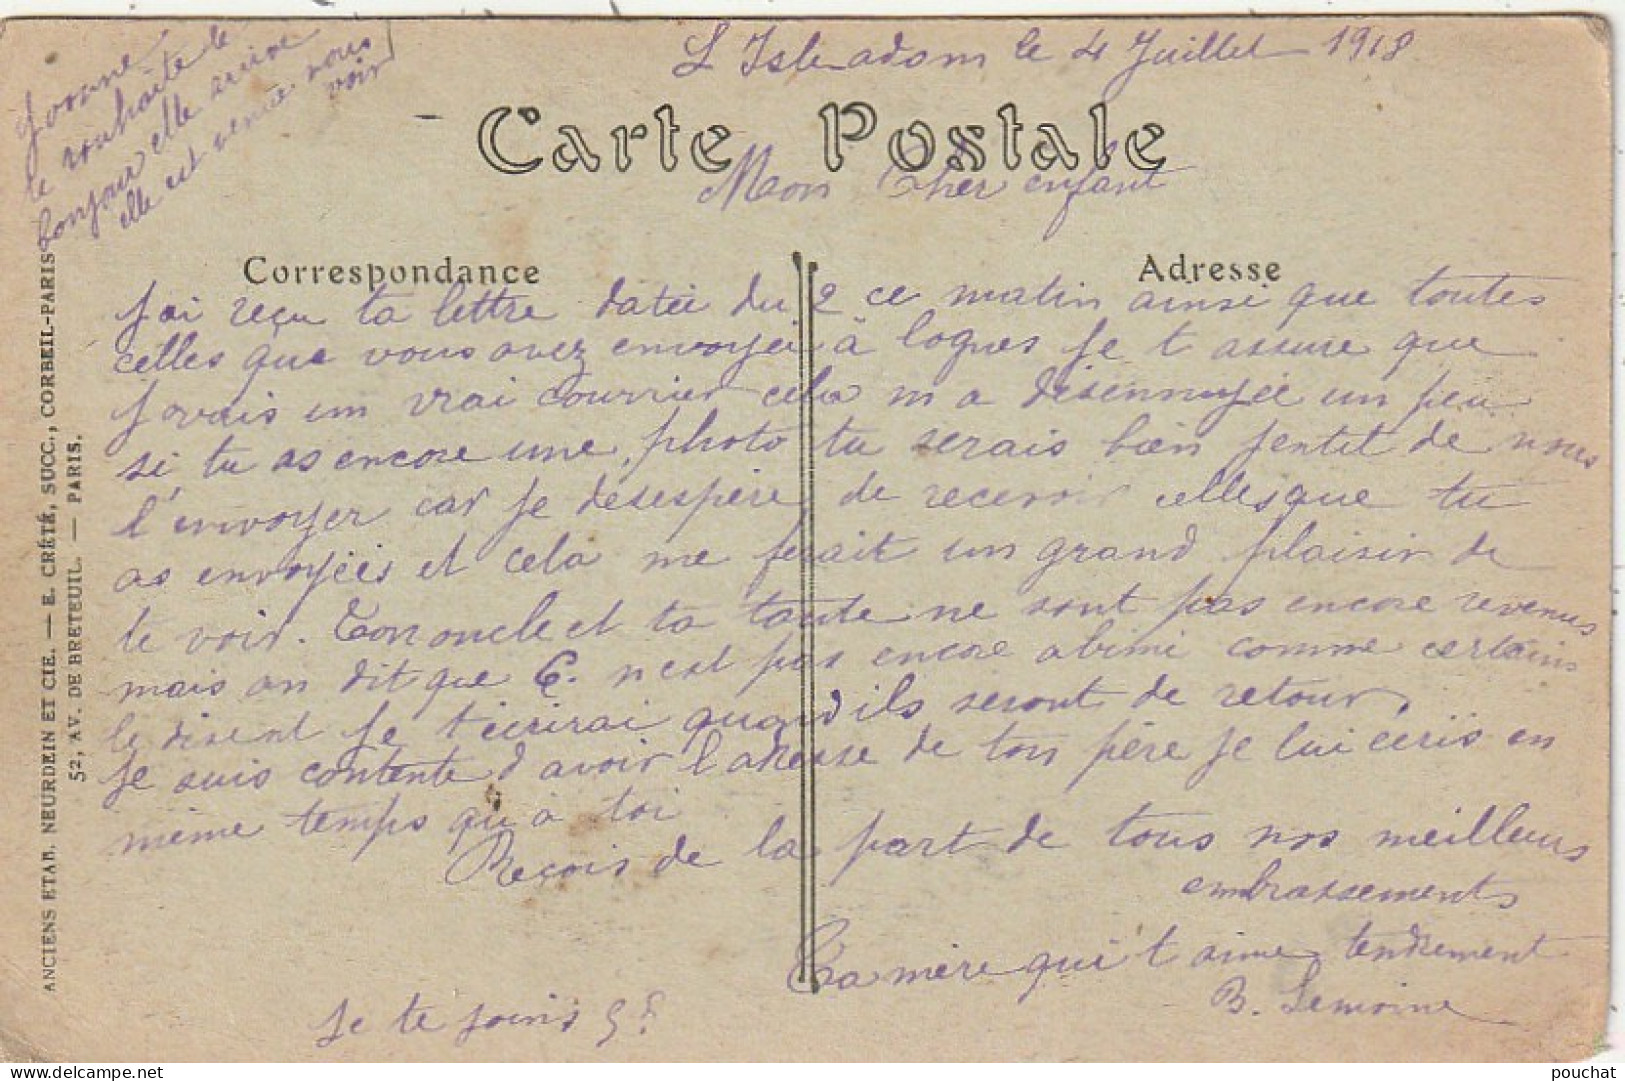 L'Isle adam le 4 Juillet 1918
Yvonne
te souhaite le
bonjour elle arrive
elle est venue nous
voir
Carte Postale
Mon Cher enfant
Correspondance
Adresse
J ai reçu ta lettre datée du 2 ce matin ainsi que toutes
celles que vous avez envoyée à lognes je t assure que
j avais un vrai courrier cela m a désennuyée un peu
si tu as encore une photo tu serais bien gentil de nous
l'envoyer car je désespère de recevoir celles que tu
as envoyées et cela me ferait un grand plaisir de
te voir. Ton oncle et ta tante ne sont pas encore revenus
mais on dit que C. n est pas encore abimé comme certains
le disent je t'écrirai quand ils seront de retour.
Je suis contente d avoir l adresse de ton père je lui écris en
même temps qu'à toi
Reçois de la part de tous nos meilleurs
embrassements
Ta mère qui t aime tendrement
B. Lemoine
Je te joins 5 f
ANCIENS ETAB. NEURDEIN ET CIE. — E. CRÉTÉ, SUCC., CORBEIL-PARIS
52, AV. DE BRETEUIL. — PARIS.
pouchat